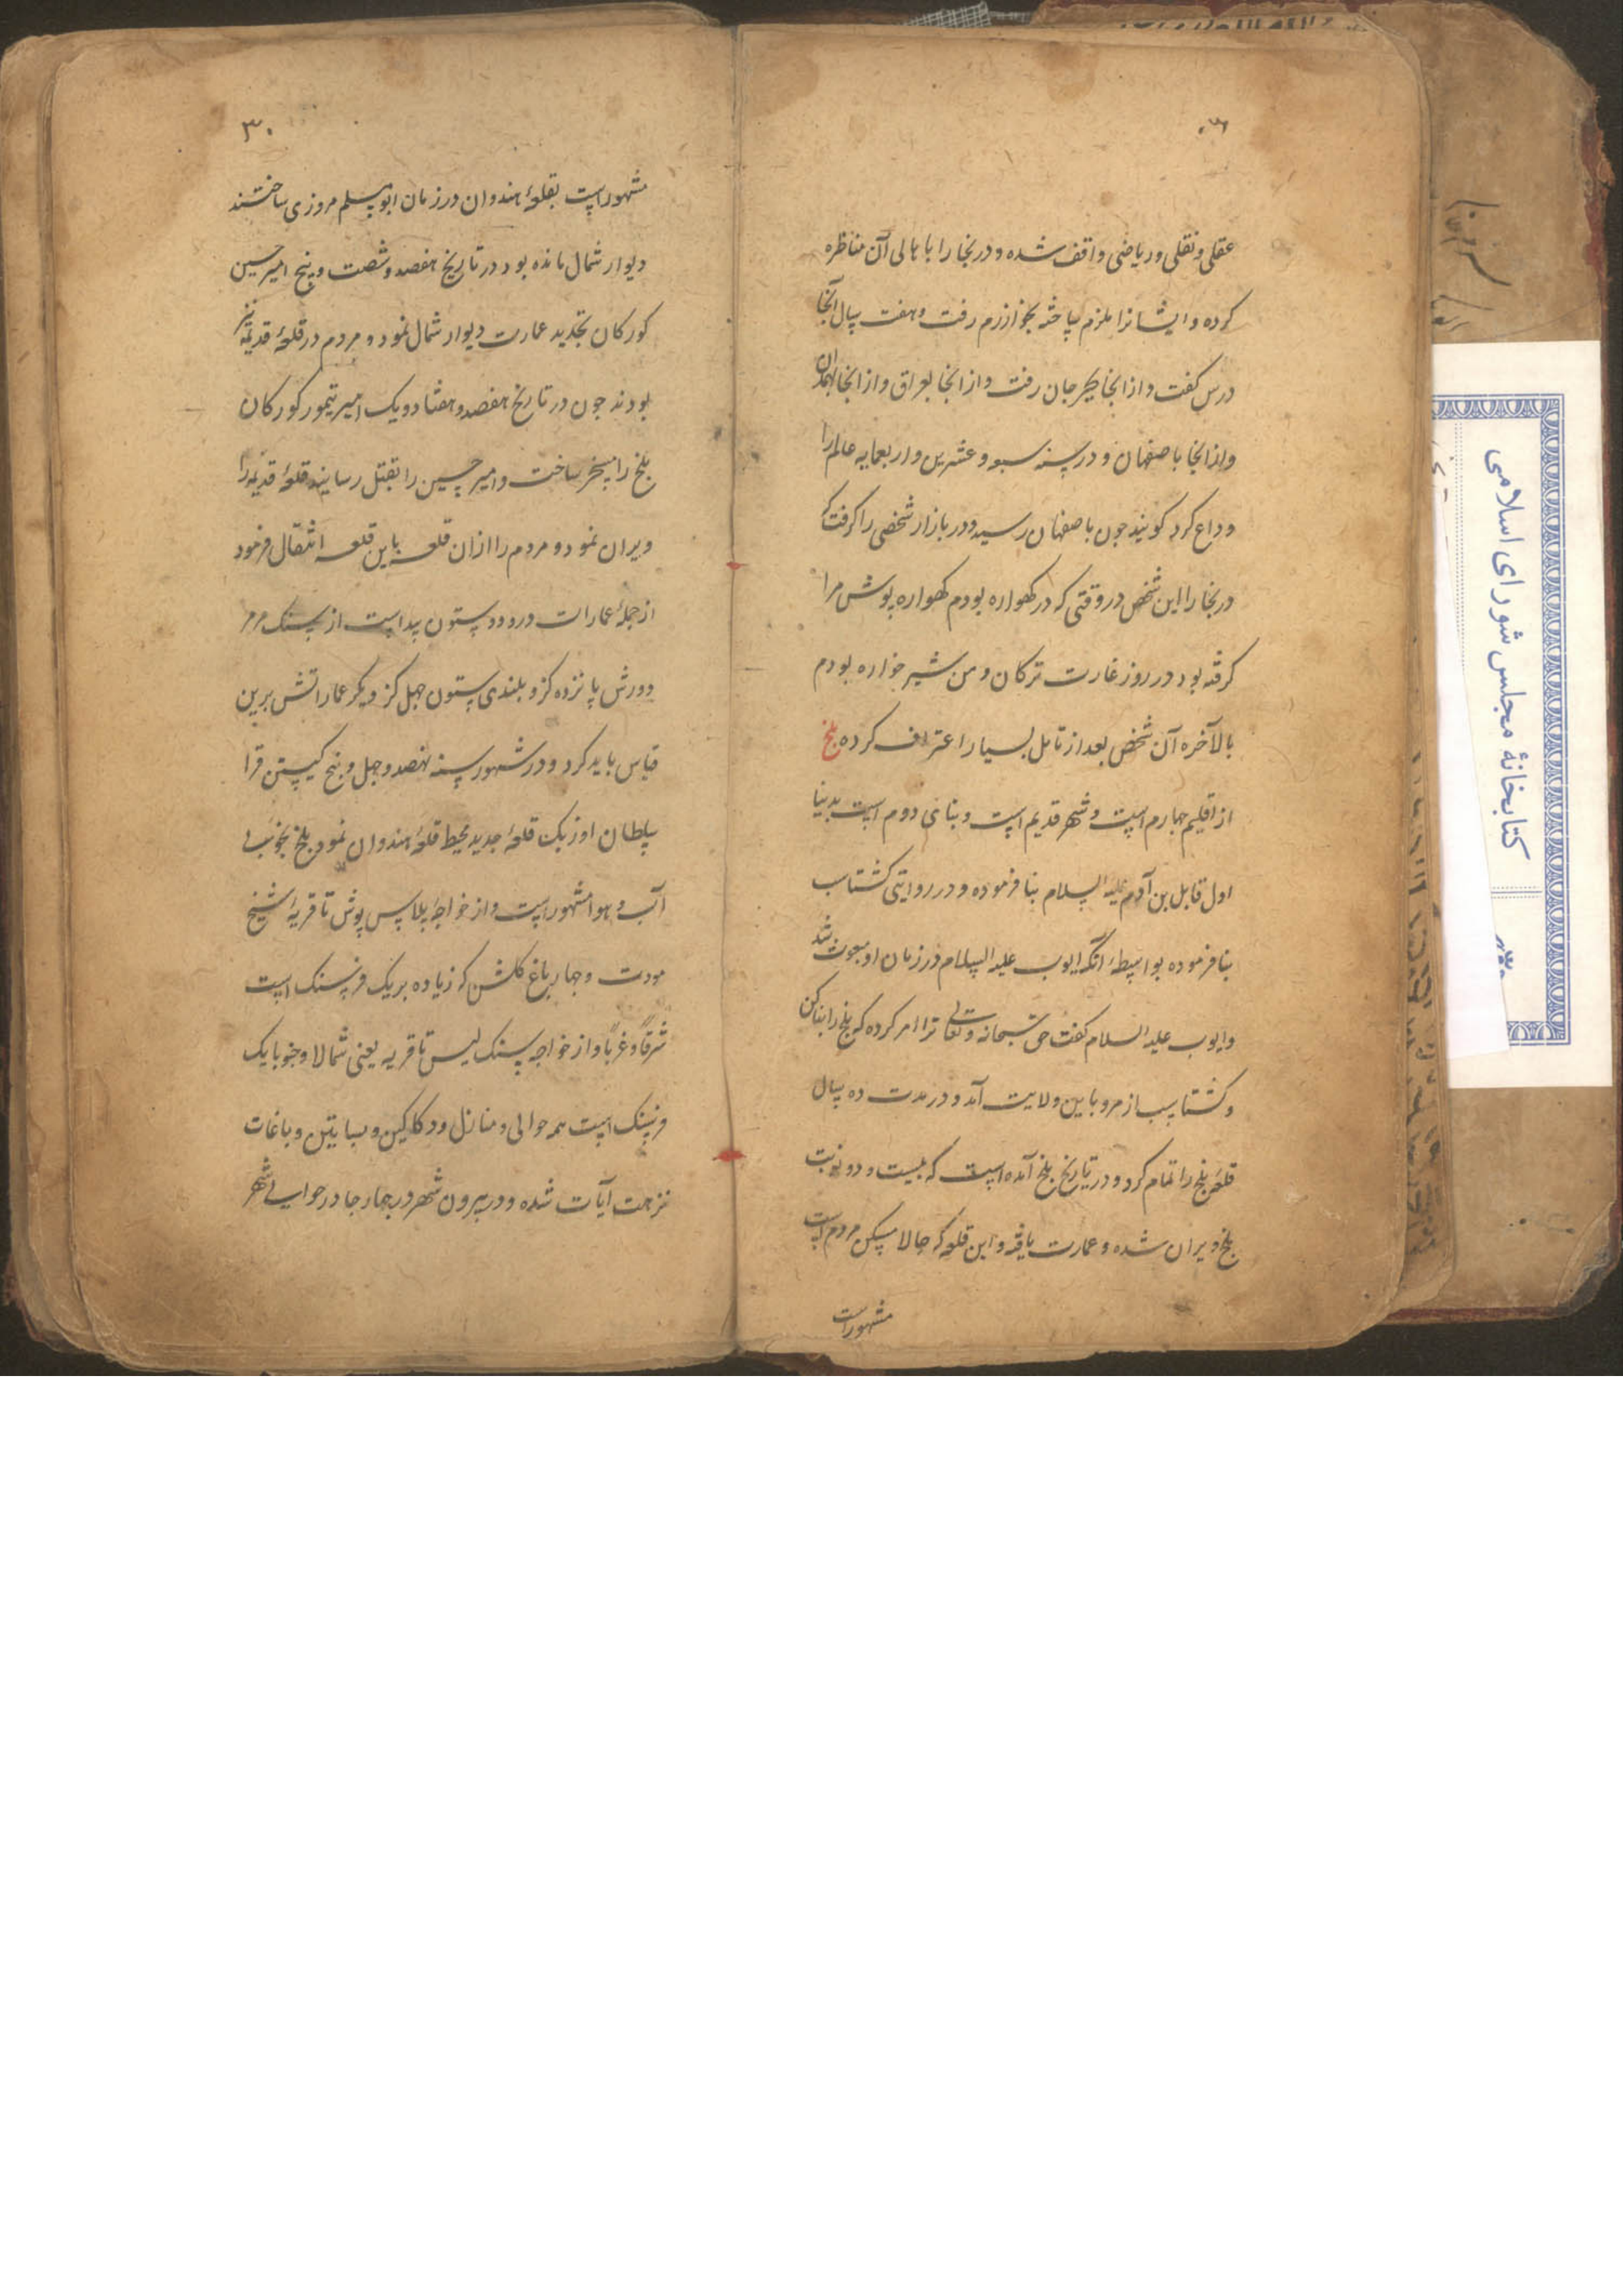 عقلی و نقلی و ریاضی واقف شده و در بخارا با هالی آن مناظره
کرده و ایشانرا ملزم ساخته بخوارزم رفت و هفت سال آنجا
درس کفت و از انجا بجرجان رفت و از انجا بعراق و از انجا بهمدان
و از انجا باصفهان و در سنه سبع و عشرین و اربعمایه عالم را
وداع کرد کویند چون باصفهان رسید و در بازار شخصی را کرفت که
در بخارا این شخص در وقتی که در کهواره بودم کهواره پوش مرا
کرفته بود در روز غارت ترکان و من شیر خواره بودم
بالآخره آن شخص بعد از تامل بسیار اعتراف کرده بلخ
از اقلیم چهارم است و شهر قدیم است و بنای دوم است بدنیا
اول قابل بن آدم علیه السلام بنا فرموده و در روایتی کشتاسب
بنا فرموده بواسطهٔ آنکه ایوب علیه السلام در زمان او مبعوث شد
و ایوب علیه السلام کفت حق سبحانه و تعالی ترا امر کرده که بلخ را بنا کن
و کشتاسب از مرو باین ولایت آمد و در مدت ده سال
قلعهٔ بلخ را تمام کرد و در تاریخ بلخ آمده است که بیست و دو نوبت
بلخ ویران شده و عمارت یافته و این قلعه که حالا مسکن مردم است
مشهور است
۳۰
مشهور است بقلعهٔ هندوان در زمان ابو مسلم مروزی ساختند
دیوار شمال مانده بود در تاریخ هفصد و شصت و پنج امیر حسین
کورکان تجدید عمارت دیوار شمال نمود و مردم در قلعهٔ قدیمه نیز
بودند چون در تاریخ هفصد و هفتاد و یک امیر تیمور کورکان
بلخ را مسخر ساخت و امیر حسین را بقتل رسانید قلعهٔ قدیمه را
ویران نمود و مردم را از ان قلعه باین قلعه انتقال فرمود
از جملهٔ عمارات درو دو ستون پیداست از سنک مرمر
دورش پانزده کز و بلندی ستون چهل کز دیکر عماراتش برین
قیاس باید کرد و در شهور سنه نهصد و چهل و پنج کیستن قرا
سلطان اوزبک قلعهٔ جدید محیط قلعهٔ هندوان نمود بلخ بخوبی
آب و هوا مشهور است و از خواجهٔ پلاس پوش تا قریهٔ شیخ
مودت و چهار باغ کلشن که زیاده بر یک فرسنک است
شرقاً و غرباً و از خواجه سنک لیس تا قریه یعنی شمالا و جنوبا یک
فرسنک است همه حوالی و منازل و دکاکین و بساتین و باغات
نزهت آیات شده و در بیرون شهر در چهار جا در حوالی شهر
کتابخانهٔ مجلس شورای اسلامی